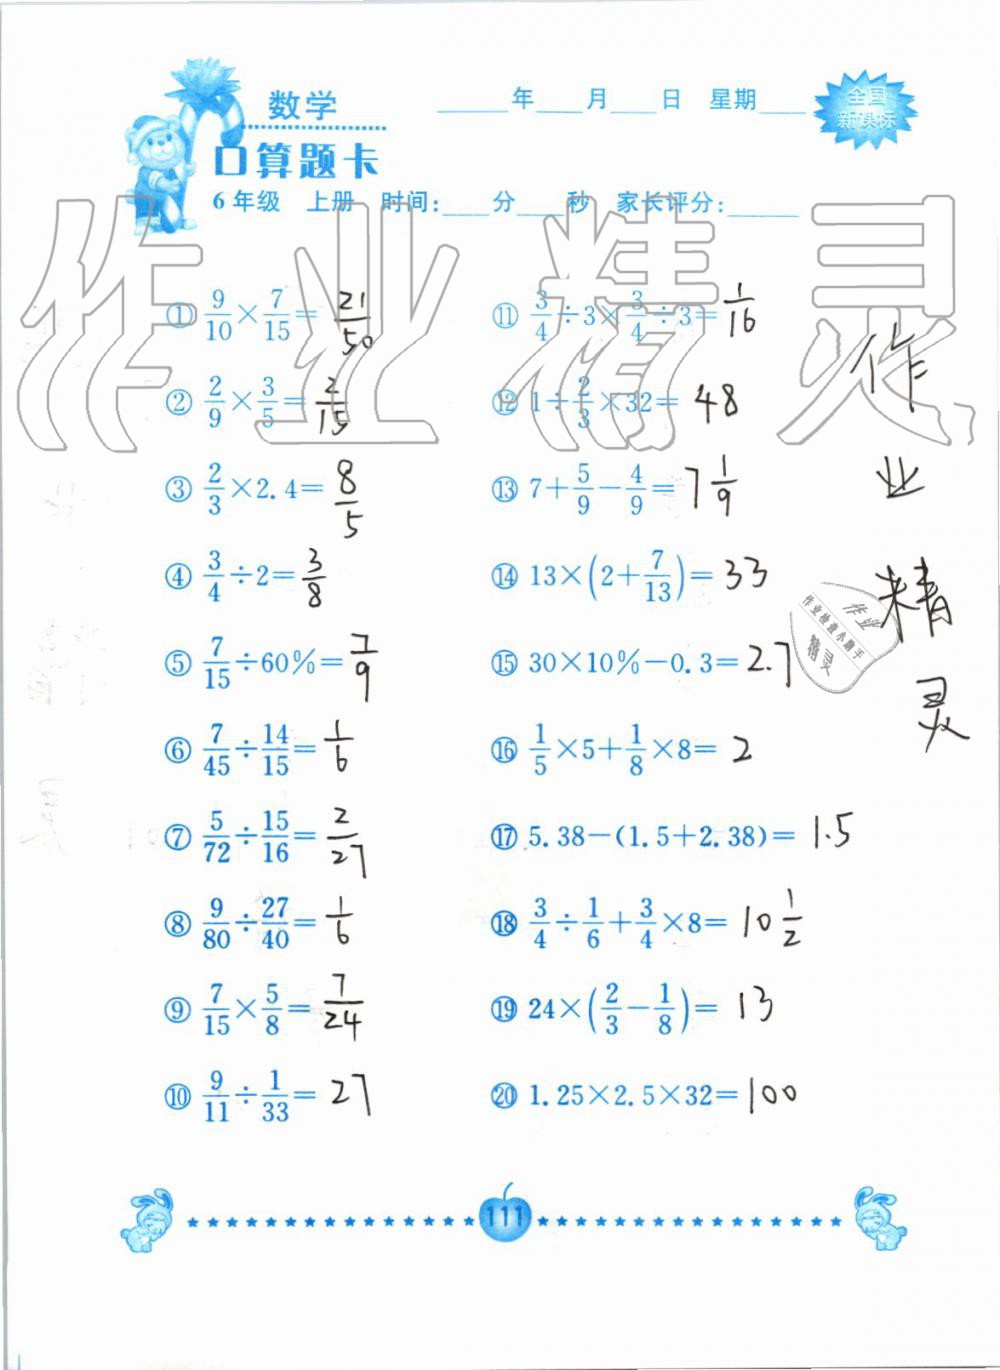 数学
____年____月____日 星期____
全国
新课标
口算题卡
6年级 上册 时间:____分____秒 家长评分:____
作业精灵
① 9/10×7/15= 21/50
② 2/9×3/5= 2/15
③ 2/3×2.4= 8/5
④ 3/4÷2= 3/8
⑤ 7/15÷60%= 7/9
⑥ 7/45÷14/15= 1/6
⑦ 5/72÷15/16= 2/27
⑧ 9/80÷27/40= 1/6
⑨ 7/15×5/8= 7/24
⑩ 9/11÷1/33= 27
⑪ 3/4÷3×3/4÷3= 1/16
⑫ 1÷2/3×32= 48
⑬ 7+5/9-4/9= 7 1/9
⑭ 13×(2+7/13)= 33
⑮ 30×10%-0.3= 2.7
⑯ 1/5×5+1/8×8= 2
⑰ 5.38-(1.5+2.38)= 1.5
⑱ 3/4÷1/6+3/4×8= 10 1/2
⑲ 24×(2/3-1/8)= 13
⑳ 1.25×2.5×32= 100
作
业
精
灵
作业
作业检查小助手
精灵
111